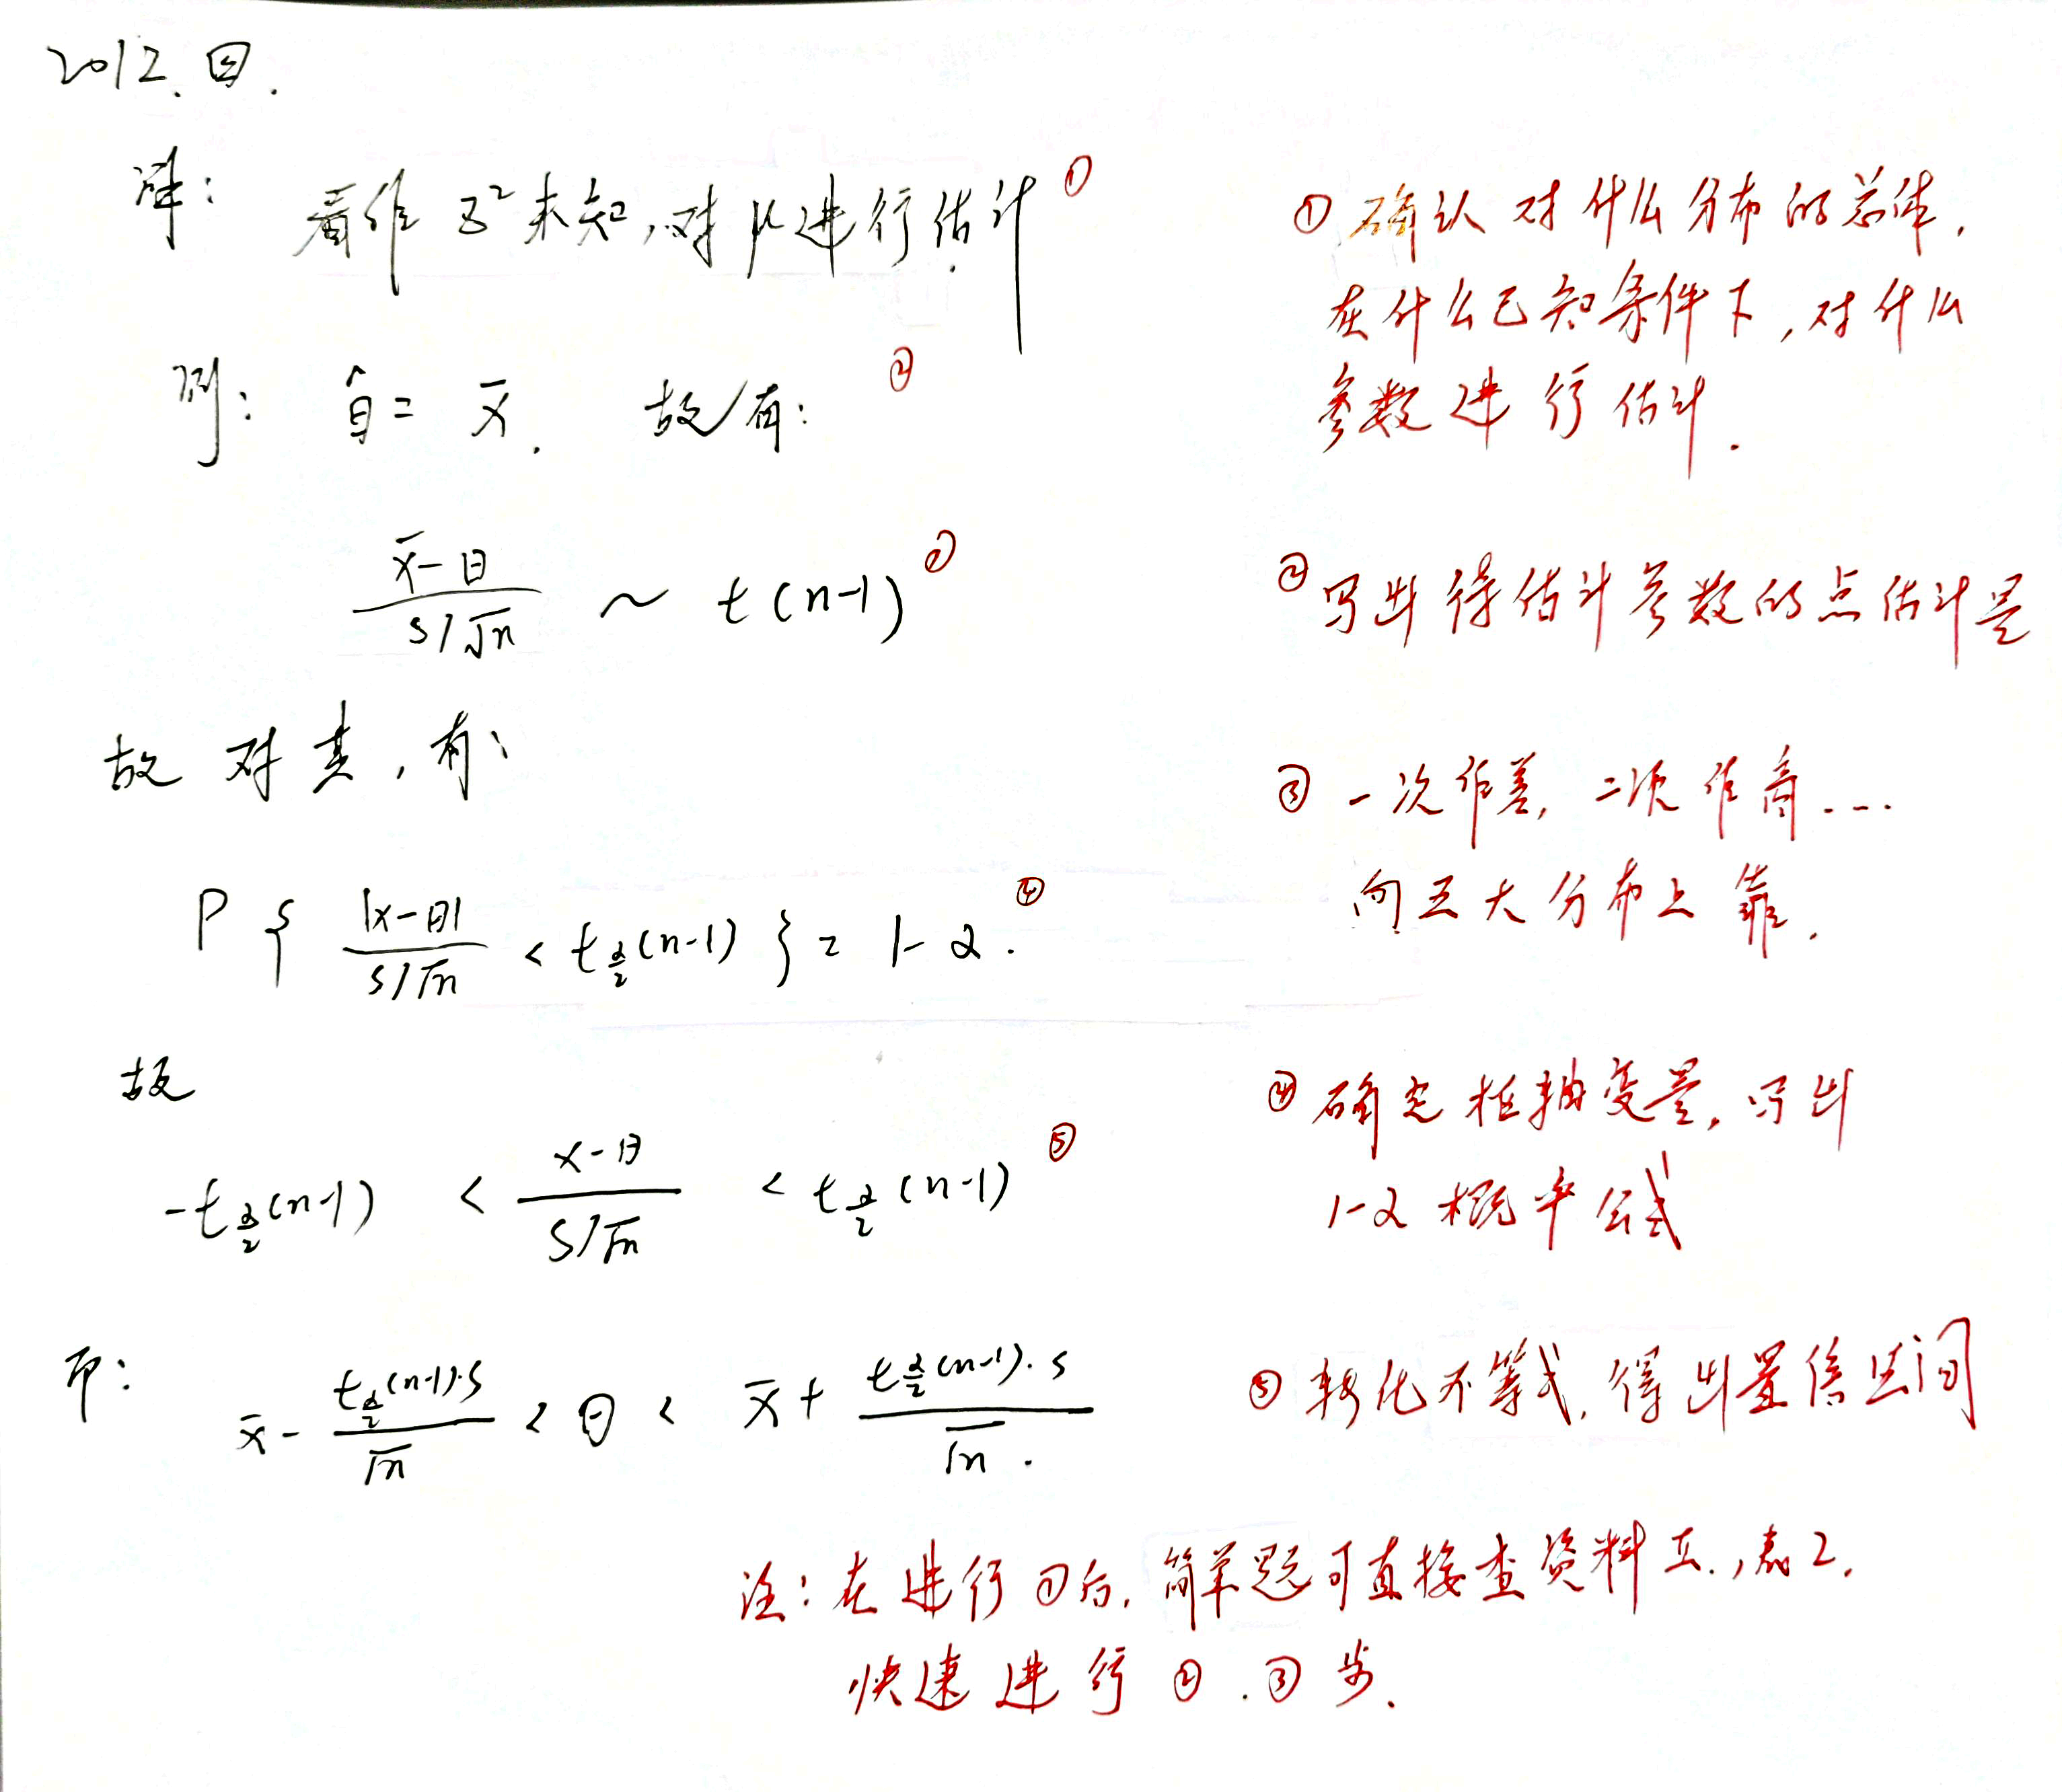 2012. 四.
解: 看作 σ² 未知, 对 μ 进行估计 ①
则: θ̂ = x̄. 故有: ②
(x̄-θ)/(S/√n) ~ t(n-1) ③
故 对 其, 有:
P { |x-θ|/(S/√n) < t_{α/2}(n-1) } = 1-α. ④
故
-t_{α/2}(n-1) < (x-θ)/(S/√n) < t_{α/2}(n-1) ⑤
即:
x̄ - t_{α/2}(n-1)·S/√n < θ < x̄ + t_{α/2}(n-1)·S/√n.
① 确认 对 什么 分布 的 总体,
在 什么 已知 条件 下, 对 什么
参数 进行 估计.
② 写出 待估计 参数 的 点估计量
③ 一次作差, 二次作商....
向 五大分布上 靠.
④ 确定 枢轴变量, 写出
1-α 概率公式
⑤ 转化不等式, 得出置信区间
注: 在进行①后, 简单题可直接查资料五., 表2.
快速进行 ②.③ 步.